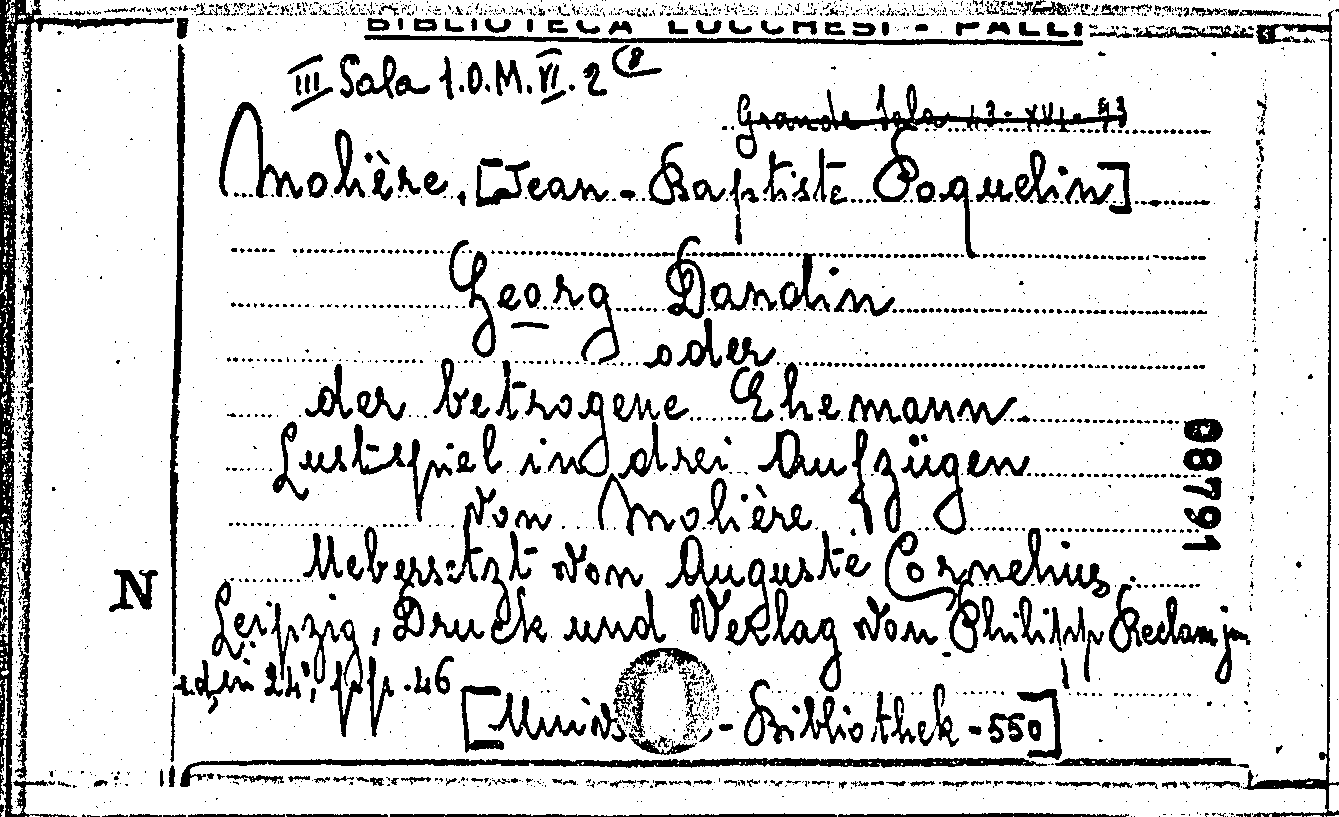 BIBLIOTECA LUCCHESI - PALLI
III Sala 1.O.M.VI.2(8
Grande Sala 13-XVI-93
Molière, [Jean-Baptiste Poquelin]
Georg Dandin
oder
der betrogene Ehemann
Lustspiel in drei Aufzügen
von Molière
Uebersetzt von Auguste Cornelius
Leipzig, Druck und Verlag von Philipp Reclam jun
in 24°, pp. 46
[Univ - Bibliothek - 550]
08791
N